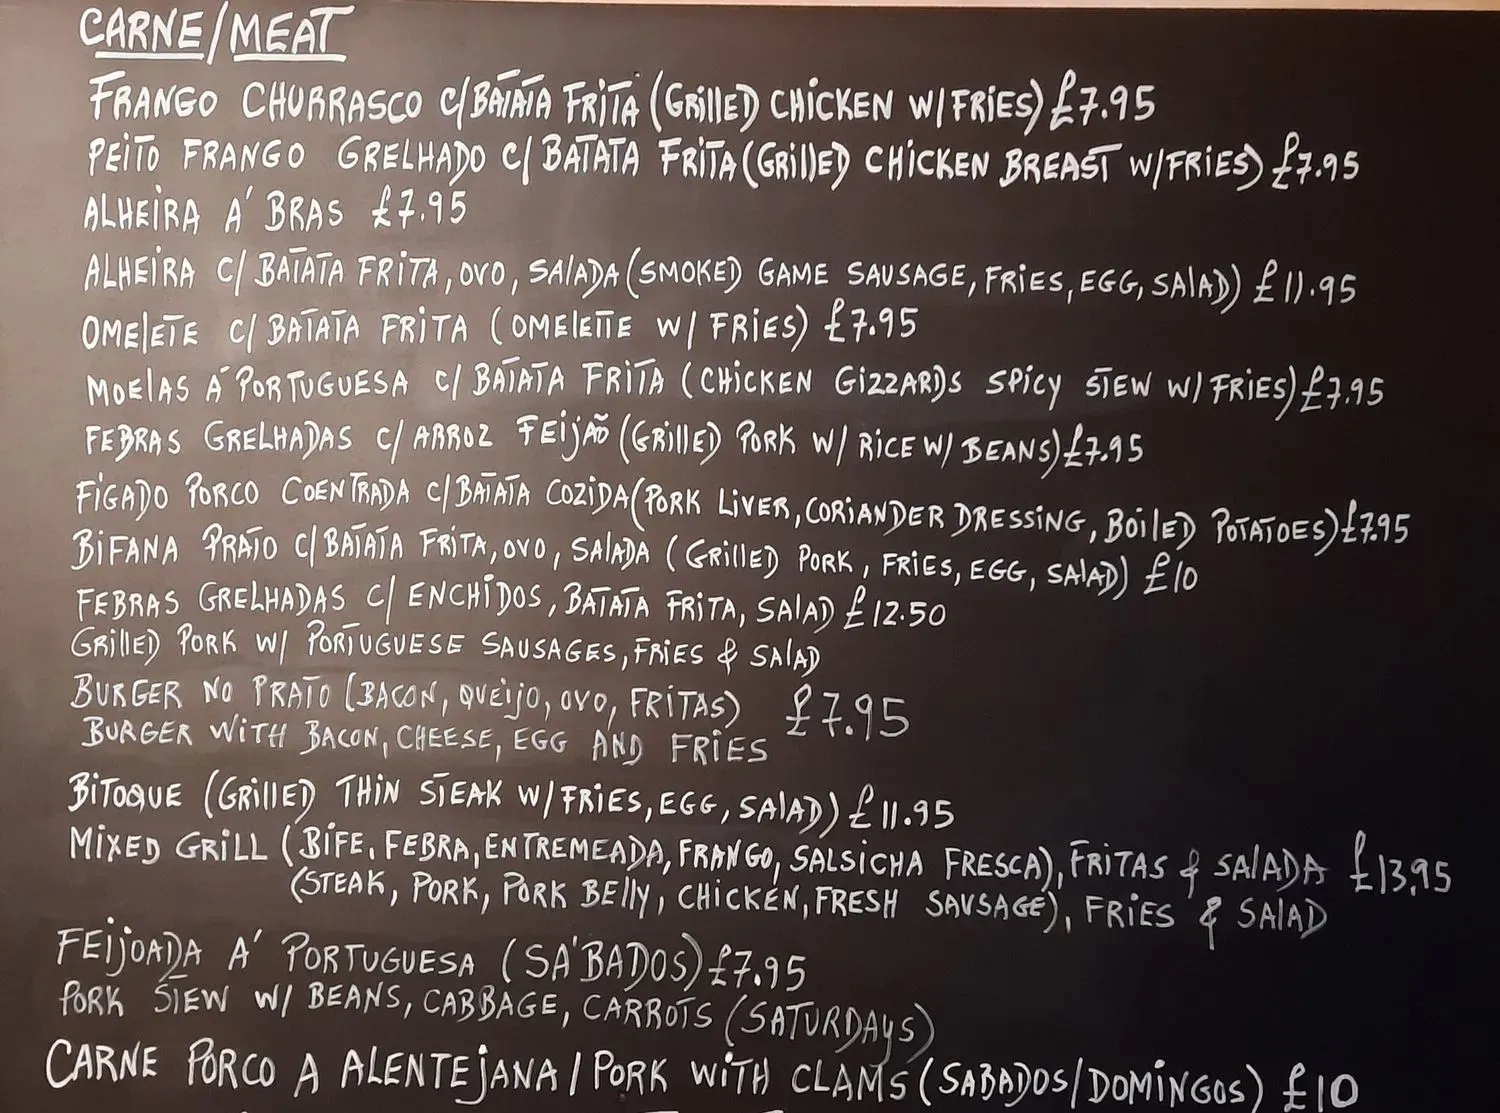 CARNE/MEAT
FRANGO CHURRASCO C/BATATA FRITA (GRILLED CHICKEN W/FRIES) £7.95
PEITO FRANGO GRELHADO C/ BATATA FRITA (GRILLED CHICKEN BREAST W/FRIES) £7.95
ALHEIRA A' BRAS £7.95
ALHEIRA C/ BATATA FRITA, OVO, SALADA (SMOKED GAME SAUSAGE, FRIES, EGG, SALAD) £11.95
OMELETE C/ BATATA FRITA (OMELETTE W/ FRIES) £7.95
MOELAS A' PORTUGUESA C/ BATATA FRITA (CHICKEN GIZZARDS SPICY STEW W/ FRIES) £7.95
FEBRAS GRELHADAS C/ ARROZ FEIJÃO (GRILLED PORK W/ RICE W/ BEANS) £7.95
FIGADO PORCO COENTRADA C/BATATA COZIDA (PORK LIVER, CORIANDER DRESSING, BOILED POTATOES) £7.95
BIFANA PRATO C/ BATATA FRITA, OVO, SALADA (GRILLED PORK, FRIES, EGG, SALAD) £10
FEBRAS GRELHADAS C/ ENCHIDOS, BATATA FRITA, SALAD £12.50
GRILLED PORK W/ PORTUGUESE SAUSAGES, FRIES & SALAD
BURGER NO PRATO (BACON, QUEIJO, OVO, FRITAS) £7.95
BURGER WITH BACON, CHEESE, EGG AND FRIES
BITOQUE (GRILLED THIN STEAK W/FRIES, EGG, SALAD) £11.95
MIXED GRILL (BIFE, FEBRA, ENTREMEADA, FRANGO, SALSICHA FRESCA), FRITAS & SALADA £13,95
(STEAK, PORK, PORK BELLY, CHICKEN, FRESH SAUSAGE), FRIES & SALAD
FEIJOADA A' PORTUGUESA (SA'BADOS) £7.95
PORK STEW W/ BEANS, CABBAGE, CARROTS (SATURDAYS)
CARNE PORCO A ALENTEJANA / PORK WITH CLAMS (SABADOS/DOMINGOS) £10